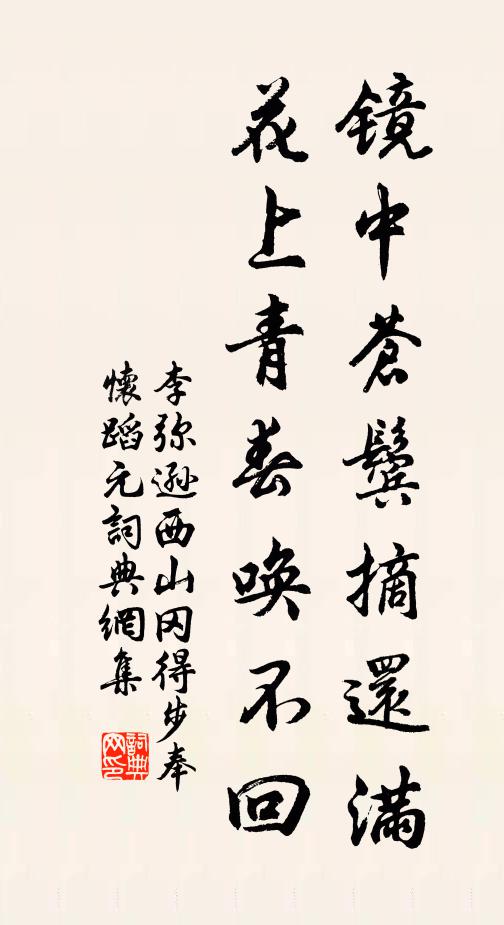 鏡中蒼鬢摘還滿
花上青春喚不回
李弥遜西山因得步奉
懷蹈元詞典網集
詞典
网印